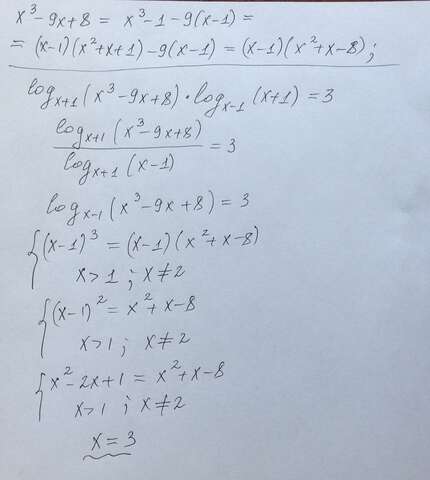 x³-9x+8 = x³-1-9(x-1)=
= (x-1)(x²+x+1)-9(x-1) = (x-1)(x²+x-8);
log_{x+1}(x³-9x+8)·log_{x-1}(x+1)=3
log_{x+1}(x³-9x+8) / log_{x+1}(x-1) = 3
log_{x-1}(x³-9x+8)=3
{(x-1)³=(x-1)(x²+x-8)
x>1; x≠2
{(x-1)²=x²+x-8
x>1; x≠2
{x²-2x+1=x²+x-8
x>1; x≠2
x=3